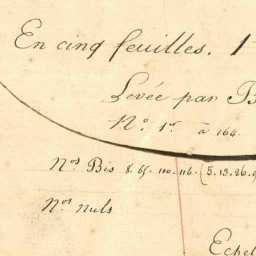 En cinq feuilles. 1
Levée par B
N.º 1.er à 164.
N.os Bis 8. 65. 110. 116. (5. 13. 26.
N.os nuls
Echel